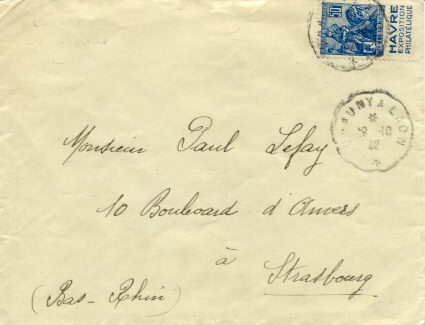 50
HAVRE
EXPOSITION
PHILATÉLIQUE
Monsieur Paul Lefay
10 Boulevard d'Anvers
à
Strasbourg
(Bas-Rhin)